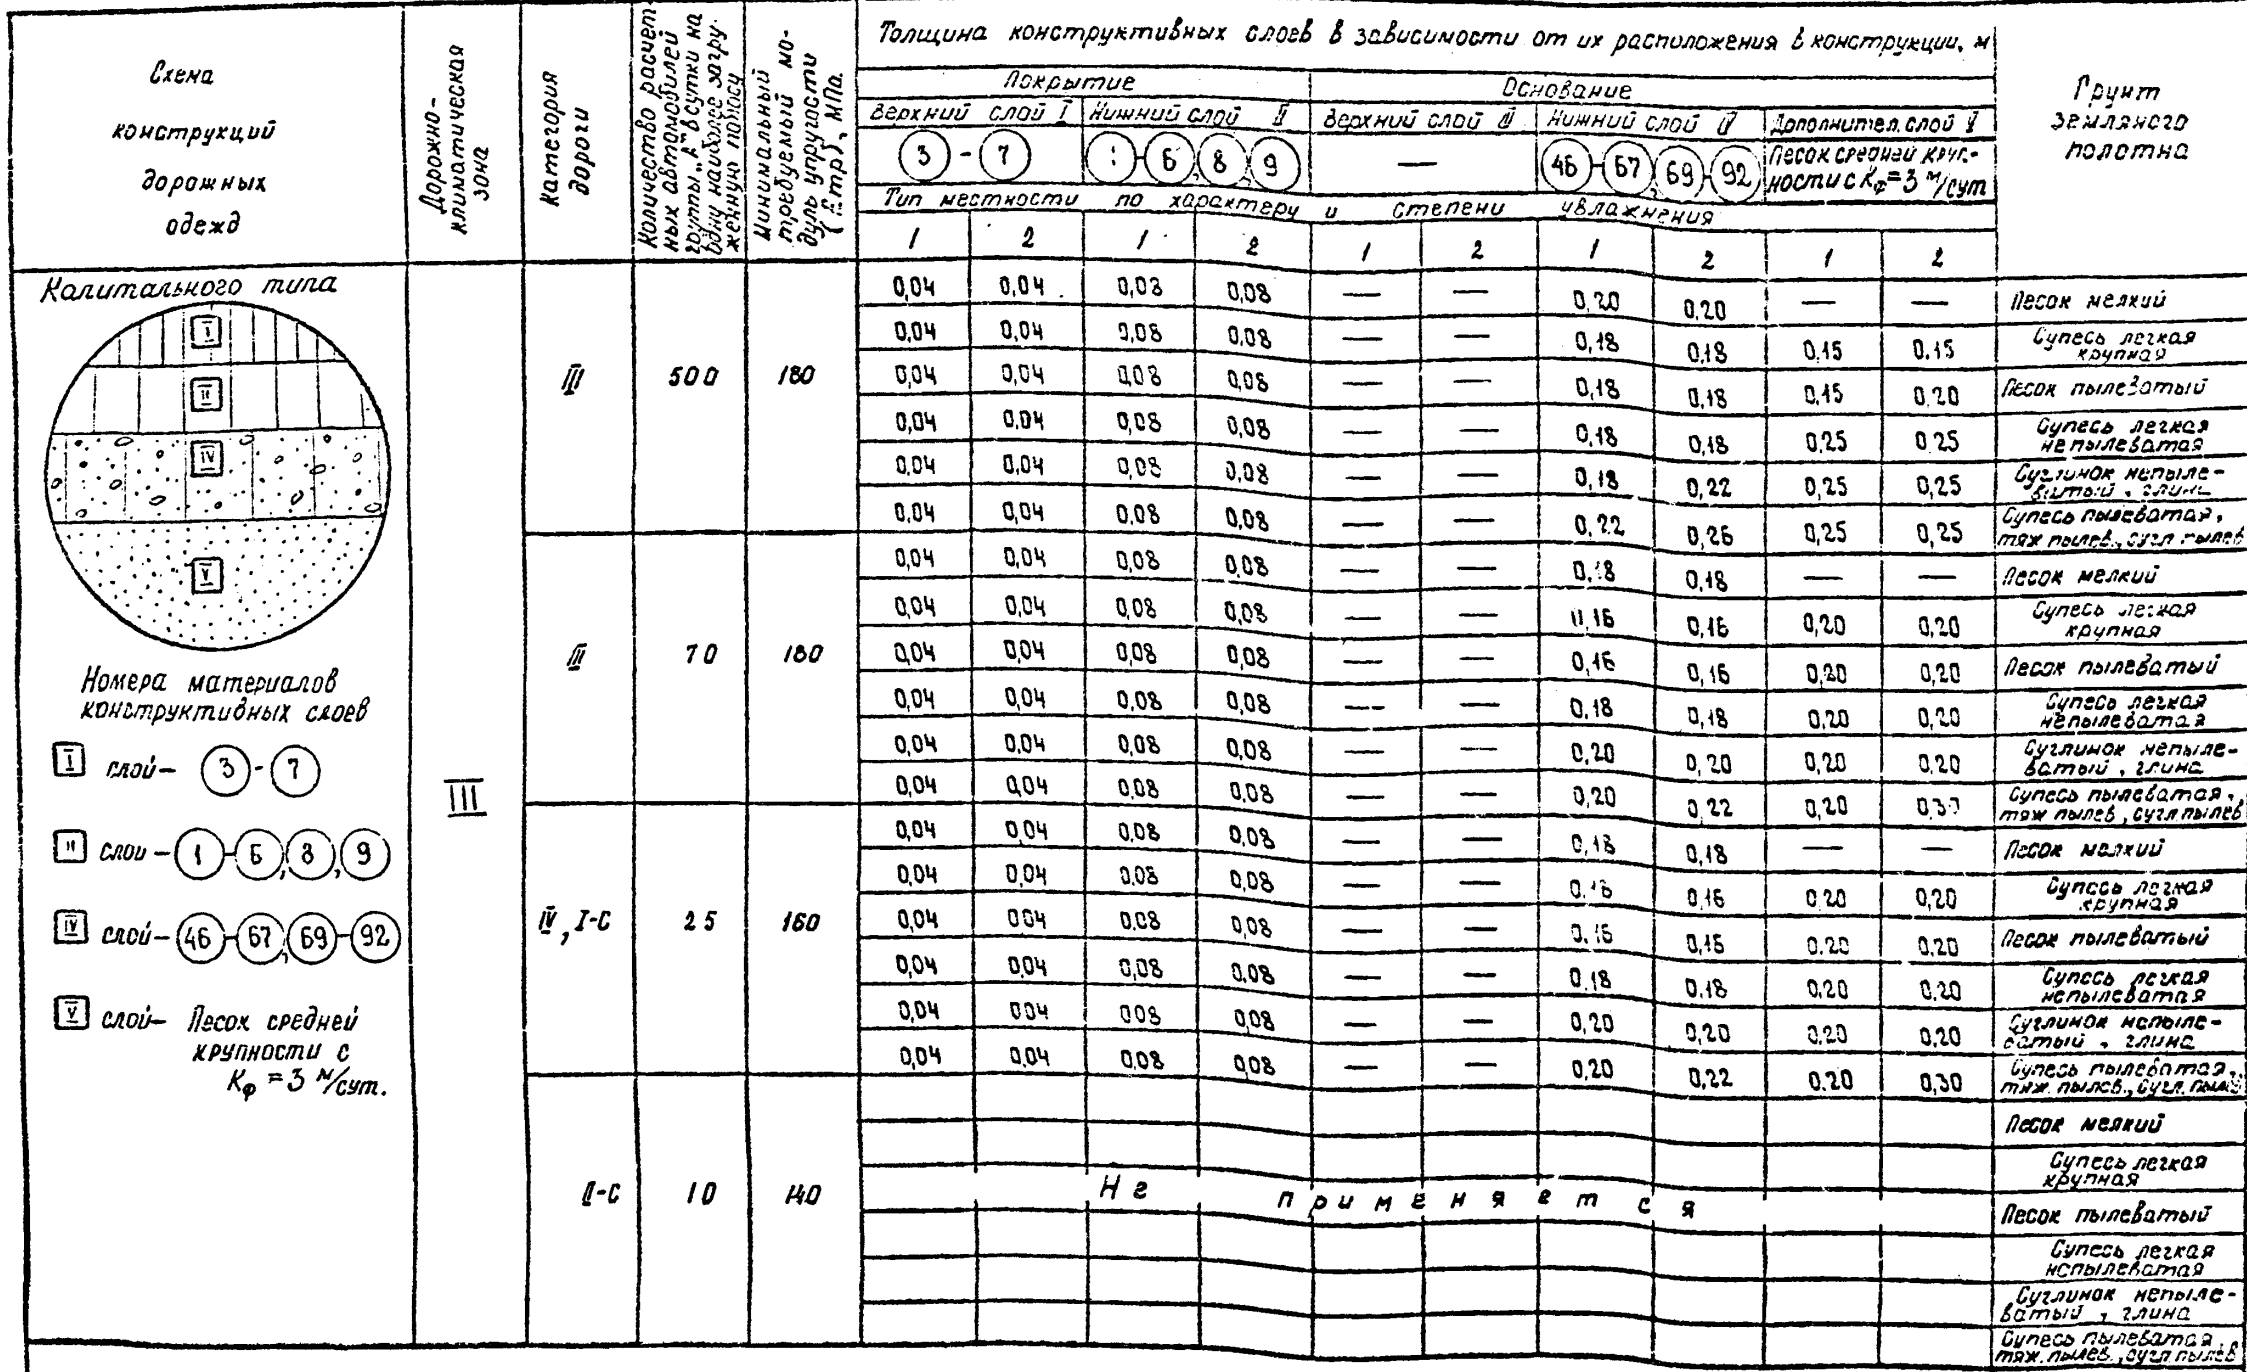 Схема
конструкций
дорожных
одежд
Дорожно-
климатическая
зона
Категория
дороги
Количество расчет-
ных автомобилей
группы „А" в сутки на
одну наиболее загру-
женную полосу
Минимальный
требуемый мо-
дуль упругости
(Етр), МПа
Толщина конструктивных слоев в зависимости от их расположения в конструкции, м
Покрытие
Основание
Верхний слой I Нижний слой II Верхний слой III Нижний слой IV Дополнител. слой V
3 - 7 1 - 6, 8, 9 — 46 - 67, 69 - 92 Песок средней круп-
ности с Kф=3 м/сут
Тип местности по характеру и степени увлажнения
1 2 1 2 1 2 1 2 1 2
Грунт
земляного
полотна
Капитального типа
I
II
IV
V
Номера материалов
конструктивных слоев
I слой- 3 - 7
II слой - 1 - 6, 8, 9
IV слой- 46 - 67, 69 - 92
V слой- Песок средней
крупности с
Kф = 3 м/сут.
III
III 500 180
0,04 0,04 0,08 0,08 — — 0,20 0,20 — — Песок мелкий
0,04 0,04 0,08 0,08 — — 0,18 0,18 0,15 0.15 Супесь легкая
крупная
0,04 0,04 0,08 0,08 — — 0,18 0,18 0,15 0.20 Песок пылеватый
0,04 0,04 0,08 0,08 — — 0,18 0,18 0,25 0.25 Супесь легкая
непылеватая
0,04 0,04 0,08 0,08 — — 0,18 0,22 0,25 0,25 Суглинок непыле-
ватый, глина
0,04 0,04 0,08 0,08 — — 0,22 0,26 0,25 0,25 Супесь пылеватая,
тяж пылев., сугл пылев
III 70 180
0,04 0,04 0,08 0,08 — — 0,18 0,18 — — Песок мелкий
0,04 0,04 0,08 0,08 — — 0,16 0,16 0,20 0,20 Супесь легкая
крупная
0,04 0,04 0,08 0,08 — — 0,16 0,16 0,20 0,20 Песок пылеватый
0,04 0,04 0,08 0,08 — — 0.18 0,18 0,20 0,20 Супесь легкая
непылеватая
0,04 0,04 0,08 0,08 — — 0,20 0,20 0,20 0.20 Суглинок непыле-
ватый, глина
0,04 0,04 0,08 0,08 — — 0,20 0,22 0,20 0,30 Супесь пылеватая,
тяж пылев, сугл пылев
IV, I-С 25 160
0,04 0,04 0,08 0,08 — — 0,18 0,18 — — Песок мелкий
0,04 0,04 0.08 0,08 — — 0,16 0,16 0.20 0,20 Супесь легкая
крупная
0,04 0 04 0,08 0,08 — — 0.16 0,16 0.20 0,20 Песок пылеватый
0,04 0,04 0,08 0,08 — — 0.18 0.18 0,20 0,20 Супесь легкая
непылеватая
0,04 0 04 0 08 0,08 — — 0,20 0,20 0,20 0,20 Суглинок непыле-
ватый, глина
0,04 0,04 0,08 0,08 — — 0,20 0,22 0.20 0,30 Супесь пылеватая,
тяж. пылев., сугл. пылев
II-С 10 140
Не применяется
Песок мелкий
Супесь легкая
крупная
Песок пылеватый
Супесь легкая
непылеватая
Суглинок непыле-
ватый, глина
Супесь пылеватая,
тяж. пылев., сугл пылев